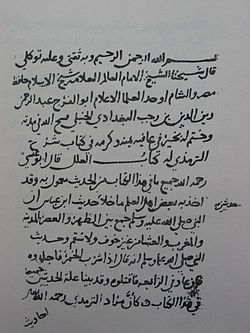 بسم الله الرحمن الرحيم وبه ثقتي وعليه توكلي
قال شيخنا الشيخ الامام العالم العلامة شيخ الاسلام حافظ
مصر والشام اوحد العلما الاعلام ابو الفرج عبد الرحمن
زين الدين بن رجب البغدادي الحنبلي
وختم له بخير في عافيه بمنه وكرمه في كتاب شرح
الترمذي له كتاب العلل قال ابو عيسى
رحمه الله جميع ما في هذا الكتاب من الحديث معمول به وقد
اخذ به بعض اهل العلم ما خلا حديث ابن عباس ان
النبي صلى الله عليه وسلم جمع بين الظهر والعصر بالمدينة
والمغرب والعشا من غير خوف ولا سقم وحديث
النبي صلى الله عليه وسلم انه قال اذا شرب الخمر فاجلدوه
فان عاد في الرابعة فاقتلوه وقد بينا علة الحديثين جميعا
في هذا الكتاب مراد الترمذي رحمه الله
احاديث